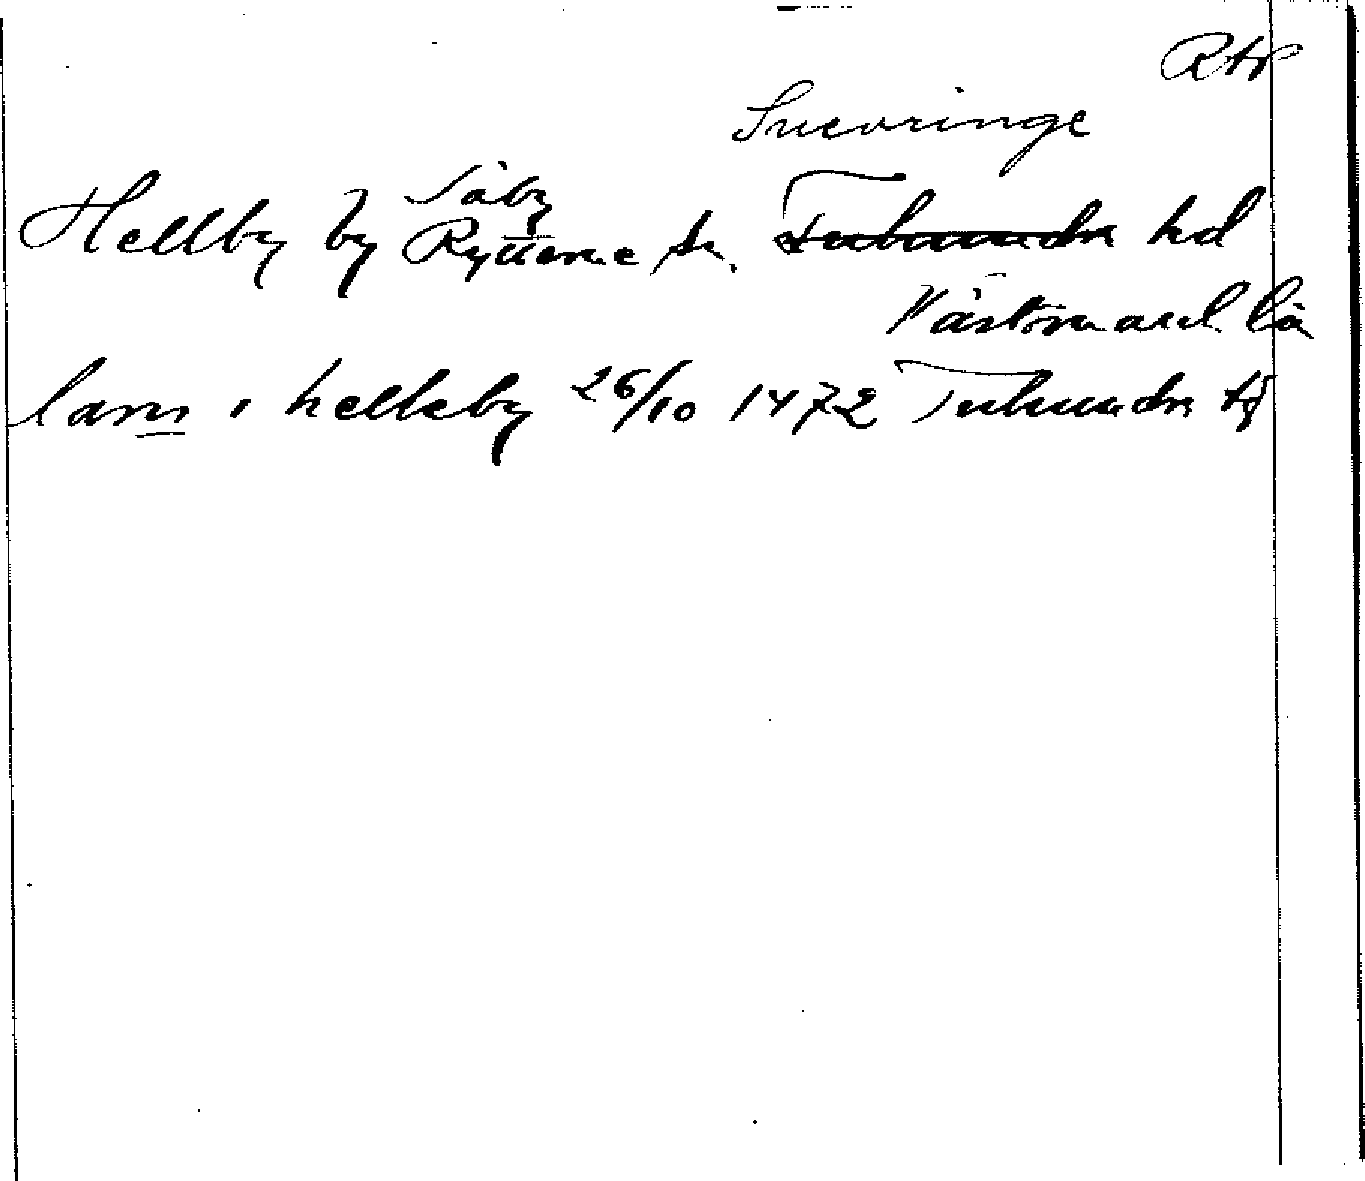 Rtr
Snevringe
Säby
Hellby by Rytterne sn. Tuhundra hd
Västmanl. län
lars i helleby 26/10 1472 Tuhundra